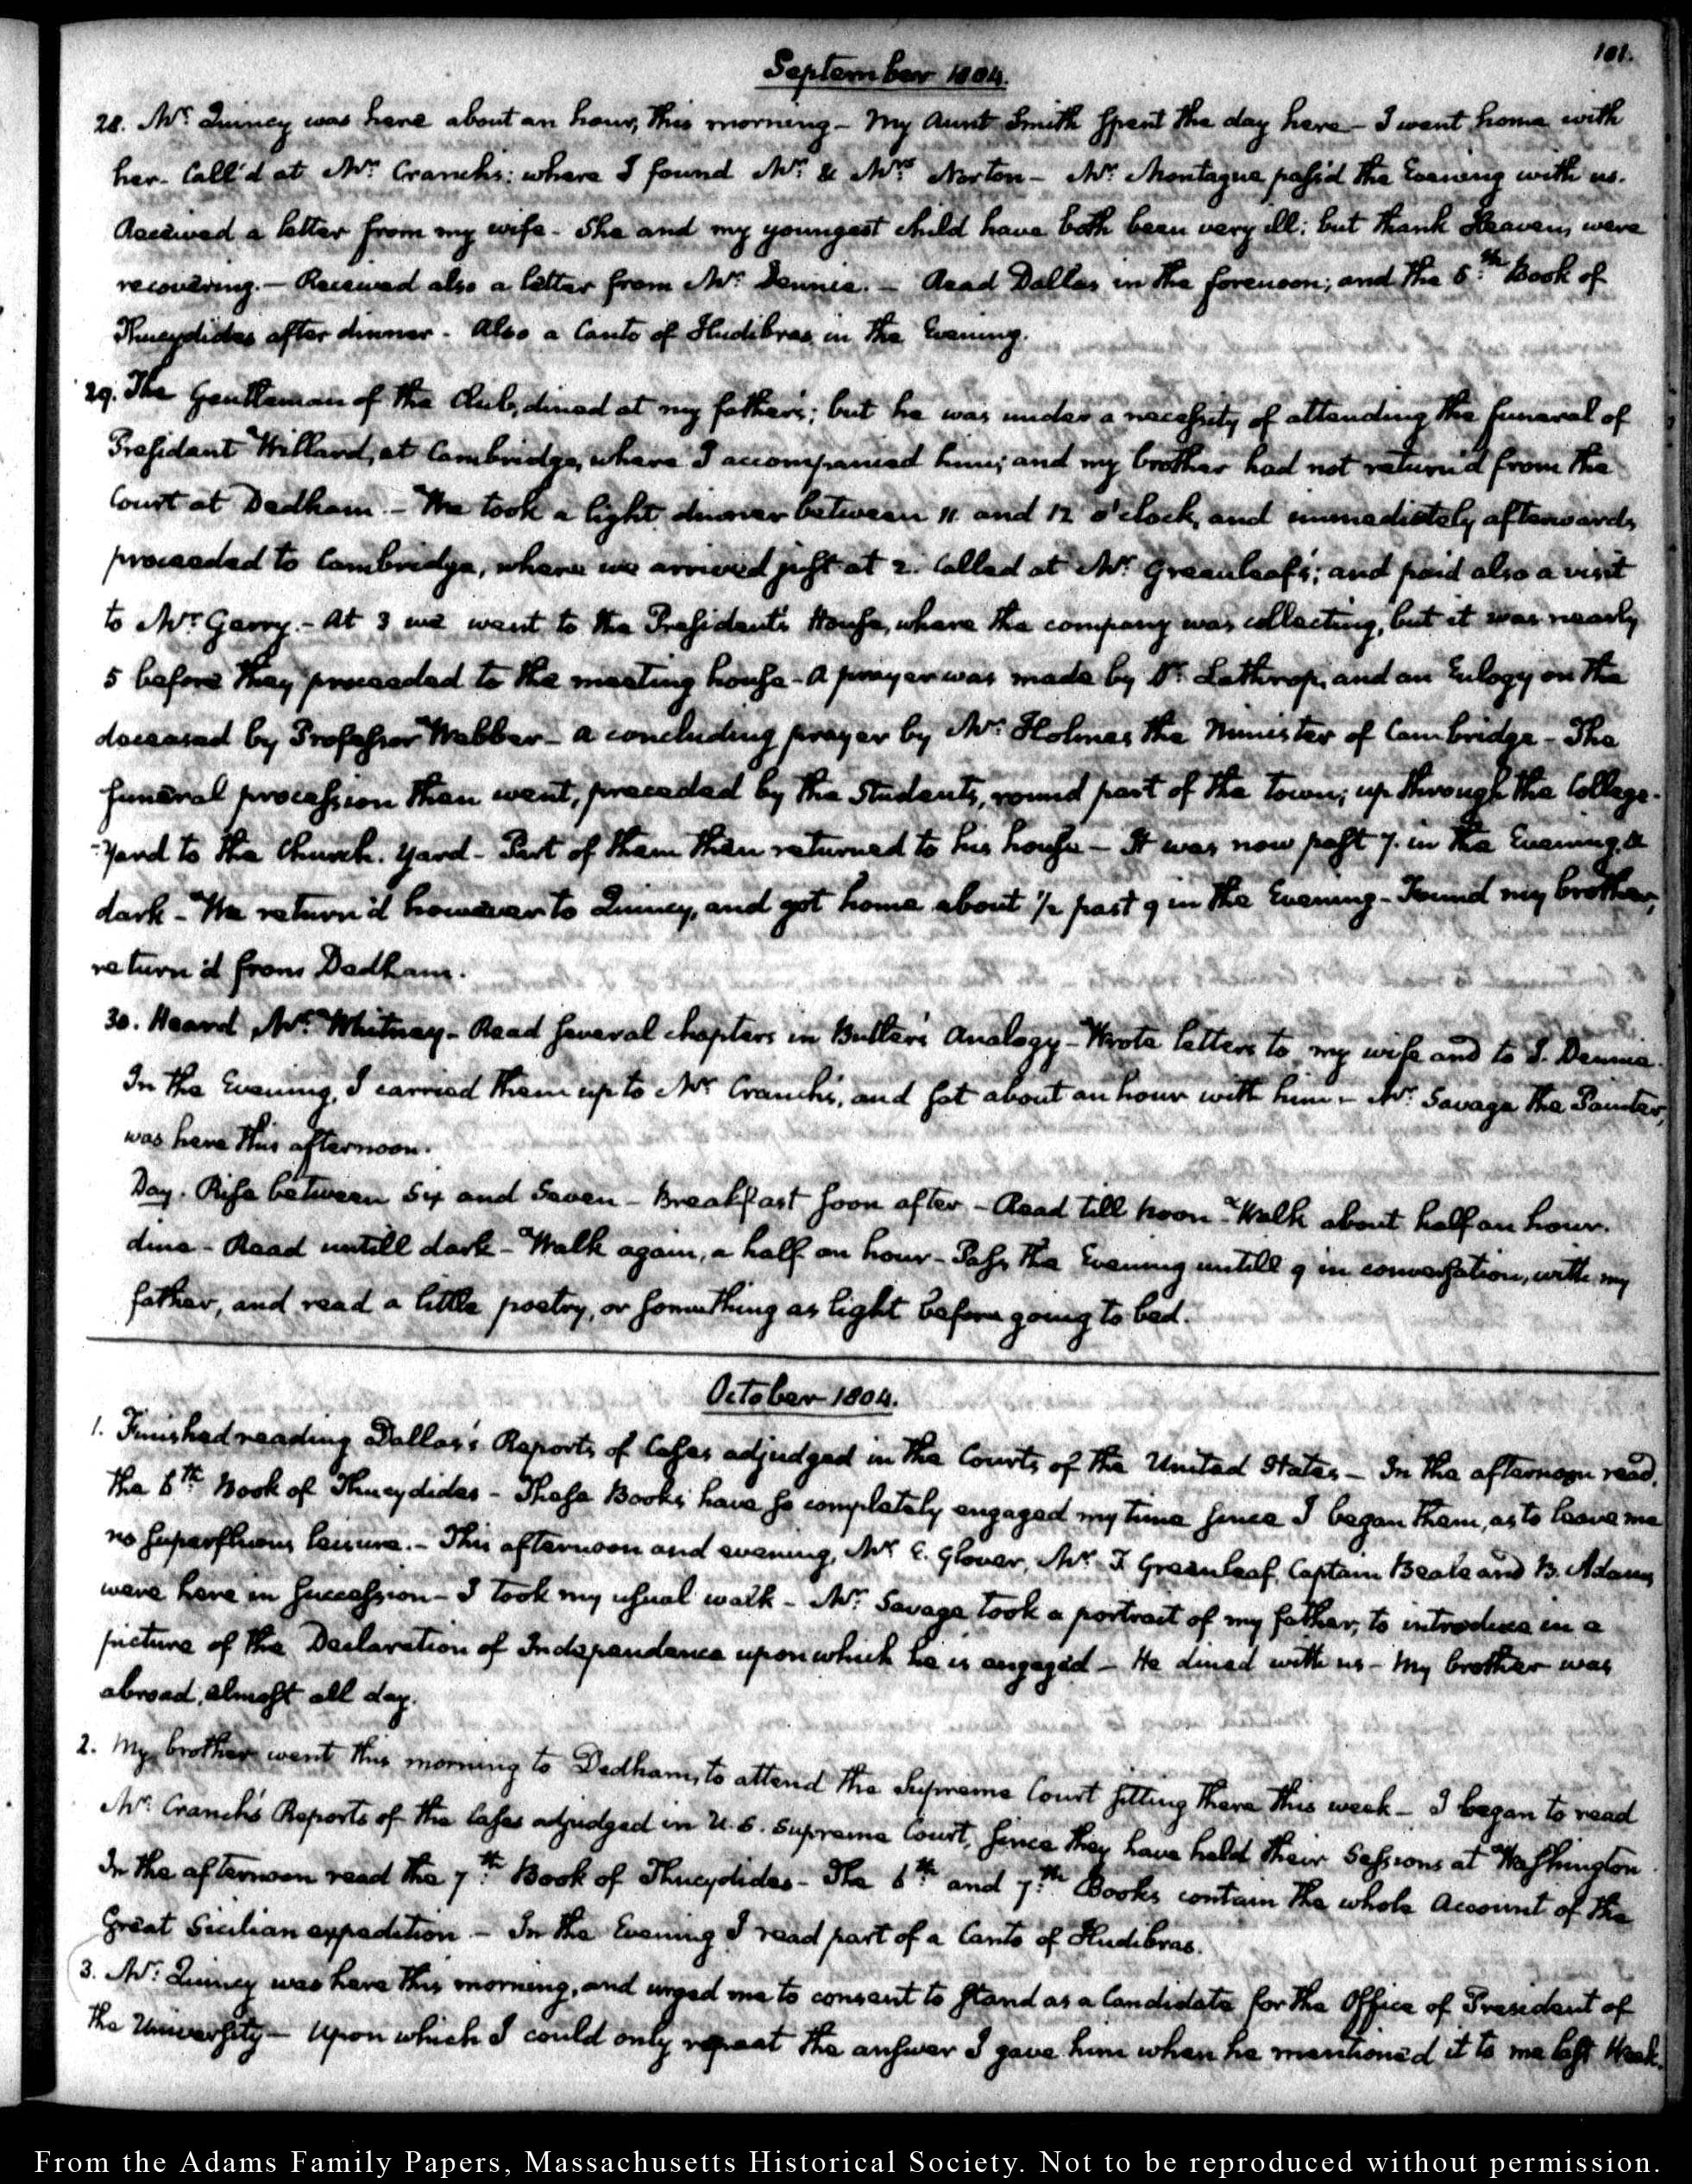 101.
September 1804.
28. Mr. Quincy was here about an hour, this morning - My Aunt Smith spent the day here - I went home with
her. Call'd at Mr. Cranch's: where I found Mr. & Mrs. Norton - Mr. Montague pass'd the Evening with us.
Received a letter from my wife - She and my youngest child have both been very ill; but thank Heaven, were
recovering. - Received also a letter from Mr. Dennie. - Read Dallas in the forenoon; and the 5th. Book of
Thucydides after dinner - Also a Canto of Hudibras in the Evening.
29. The Gentlemen of the Club, dined at my father's; but he was under a necessity of attending the funeral of
President Willard, at Cambridge, where I accompanied him; and my brother had not return'd from the
Court at Dedham. - We took a light dinner between 11. and 12 o'clock, and immediately afterwards,
proceeded to Cambridge, where we arrived just at 2. Called at Mr. Greenleaf's; and paid also a visit
to Mr. Gerry. - At 3 we went to the President's House, where the company was collecting, but it was nearly
5 before they proceeded to the meeting house - A prayer was made by Dr. Lathrop, and an Eulogy on the
deceased by Professor Webber - a concluding prayer by Mr. Holmes the Minister of Cambridge - The
funeral procession then went, preceded by the Students, round part of the town; up through the College-
-Yard to the Church-Yard - Part of them then returned to his house - It was now past 7. in the Evening, &
dark - We return'd however to Quincy, and got home about 1/2 past 9 in the Evening - Found my brother,
return'd from Dedham.
30. Heard Mr. Whitney - Read several chapters in Butler's Analogy - Wrote letters to my wife and to J. Dennie.
In the Evening, I carried them up to Mr. Cranch's, and sat about an hour with him - Mr. Savage the Painter,
was here this afternoon.
Day. Rise between Six and Seven - Breakfast soon after - Read till noon - Walk about half an hour.
dine - Read untill dark - Walk again, a half an hour - Pass the Evening untill 9 in conversation, with my
father, and read a little poetry, or something as light before going to bed.
October 1804.
1. Finished reading Dallas's Reports of Cases adjudged in the Courts of the United States - In the afternoon read,
the 6th. Book of Thucydides - These Books have so completely engaged my time since I began them, as to leave me
no superfluous leisure. - This afternoon and evening, Mr. E. Glover, Mr. T. Greenleaf, Captain Beale and B. Adams,
were here in succession - I took my usual walk - Mr. Savage took a portrait of my father, to introduce in a
picture of the Declaration of Independence upon which he is engaged - He dined with us - My brother was
abroad, almost all day.
2. My brother went this morning to Dedham, to attend the Supreme Court sitting there this week - I began to read
Mr. Cranch's Reports of the Cases adjudged in U.S. Supreme Court, since they have held their Sessions at Washington.
In the afternoon read the 7th. Book of Thucydides - The 6th. and 7th. Books contain the whole Account of the
Great Sicilian expedition - In the Evening I read part of a Canto of Hudibras.
3. Mr. Quincy was here this morning, and urged me to consent to stand as a Candidate for the Office of President of
the University - Upon which I could only repeat the answer I gave him when he mentioned it to me last Week.
From the Adams Family Papers, Massachusetts Historical Society. Not to be reproduced without permission.